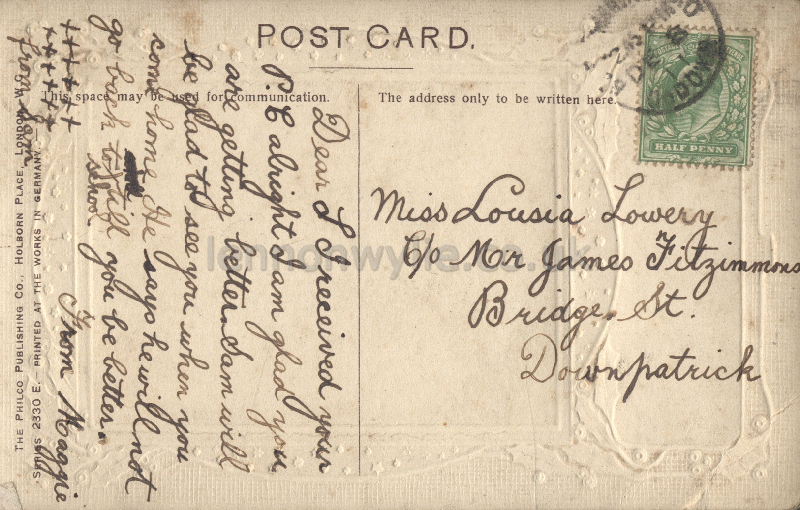 POST CARD.
This space may be used for communication.
The address only to be written here.
HALF PENNY
Miss Lousia Lowery
C/o Mr James Fitzimmons
Bridge. St.
Downpatrick
Dear L I received your
P.C alright I am glad you
are getting better. Sam will
be glad to see you when you
come home. He says he will not
go back to school
till you be better.
From Maggie
+++++
+++++
from Sam
THE PHILCO PUBLISHING CO., HOLBORN PLACE, LONDON, W.C.
SERIES 2330 E. – PRINTED AT THE WORKS IN GERMANY.
lennonwylie.co.uk